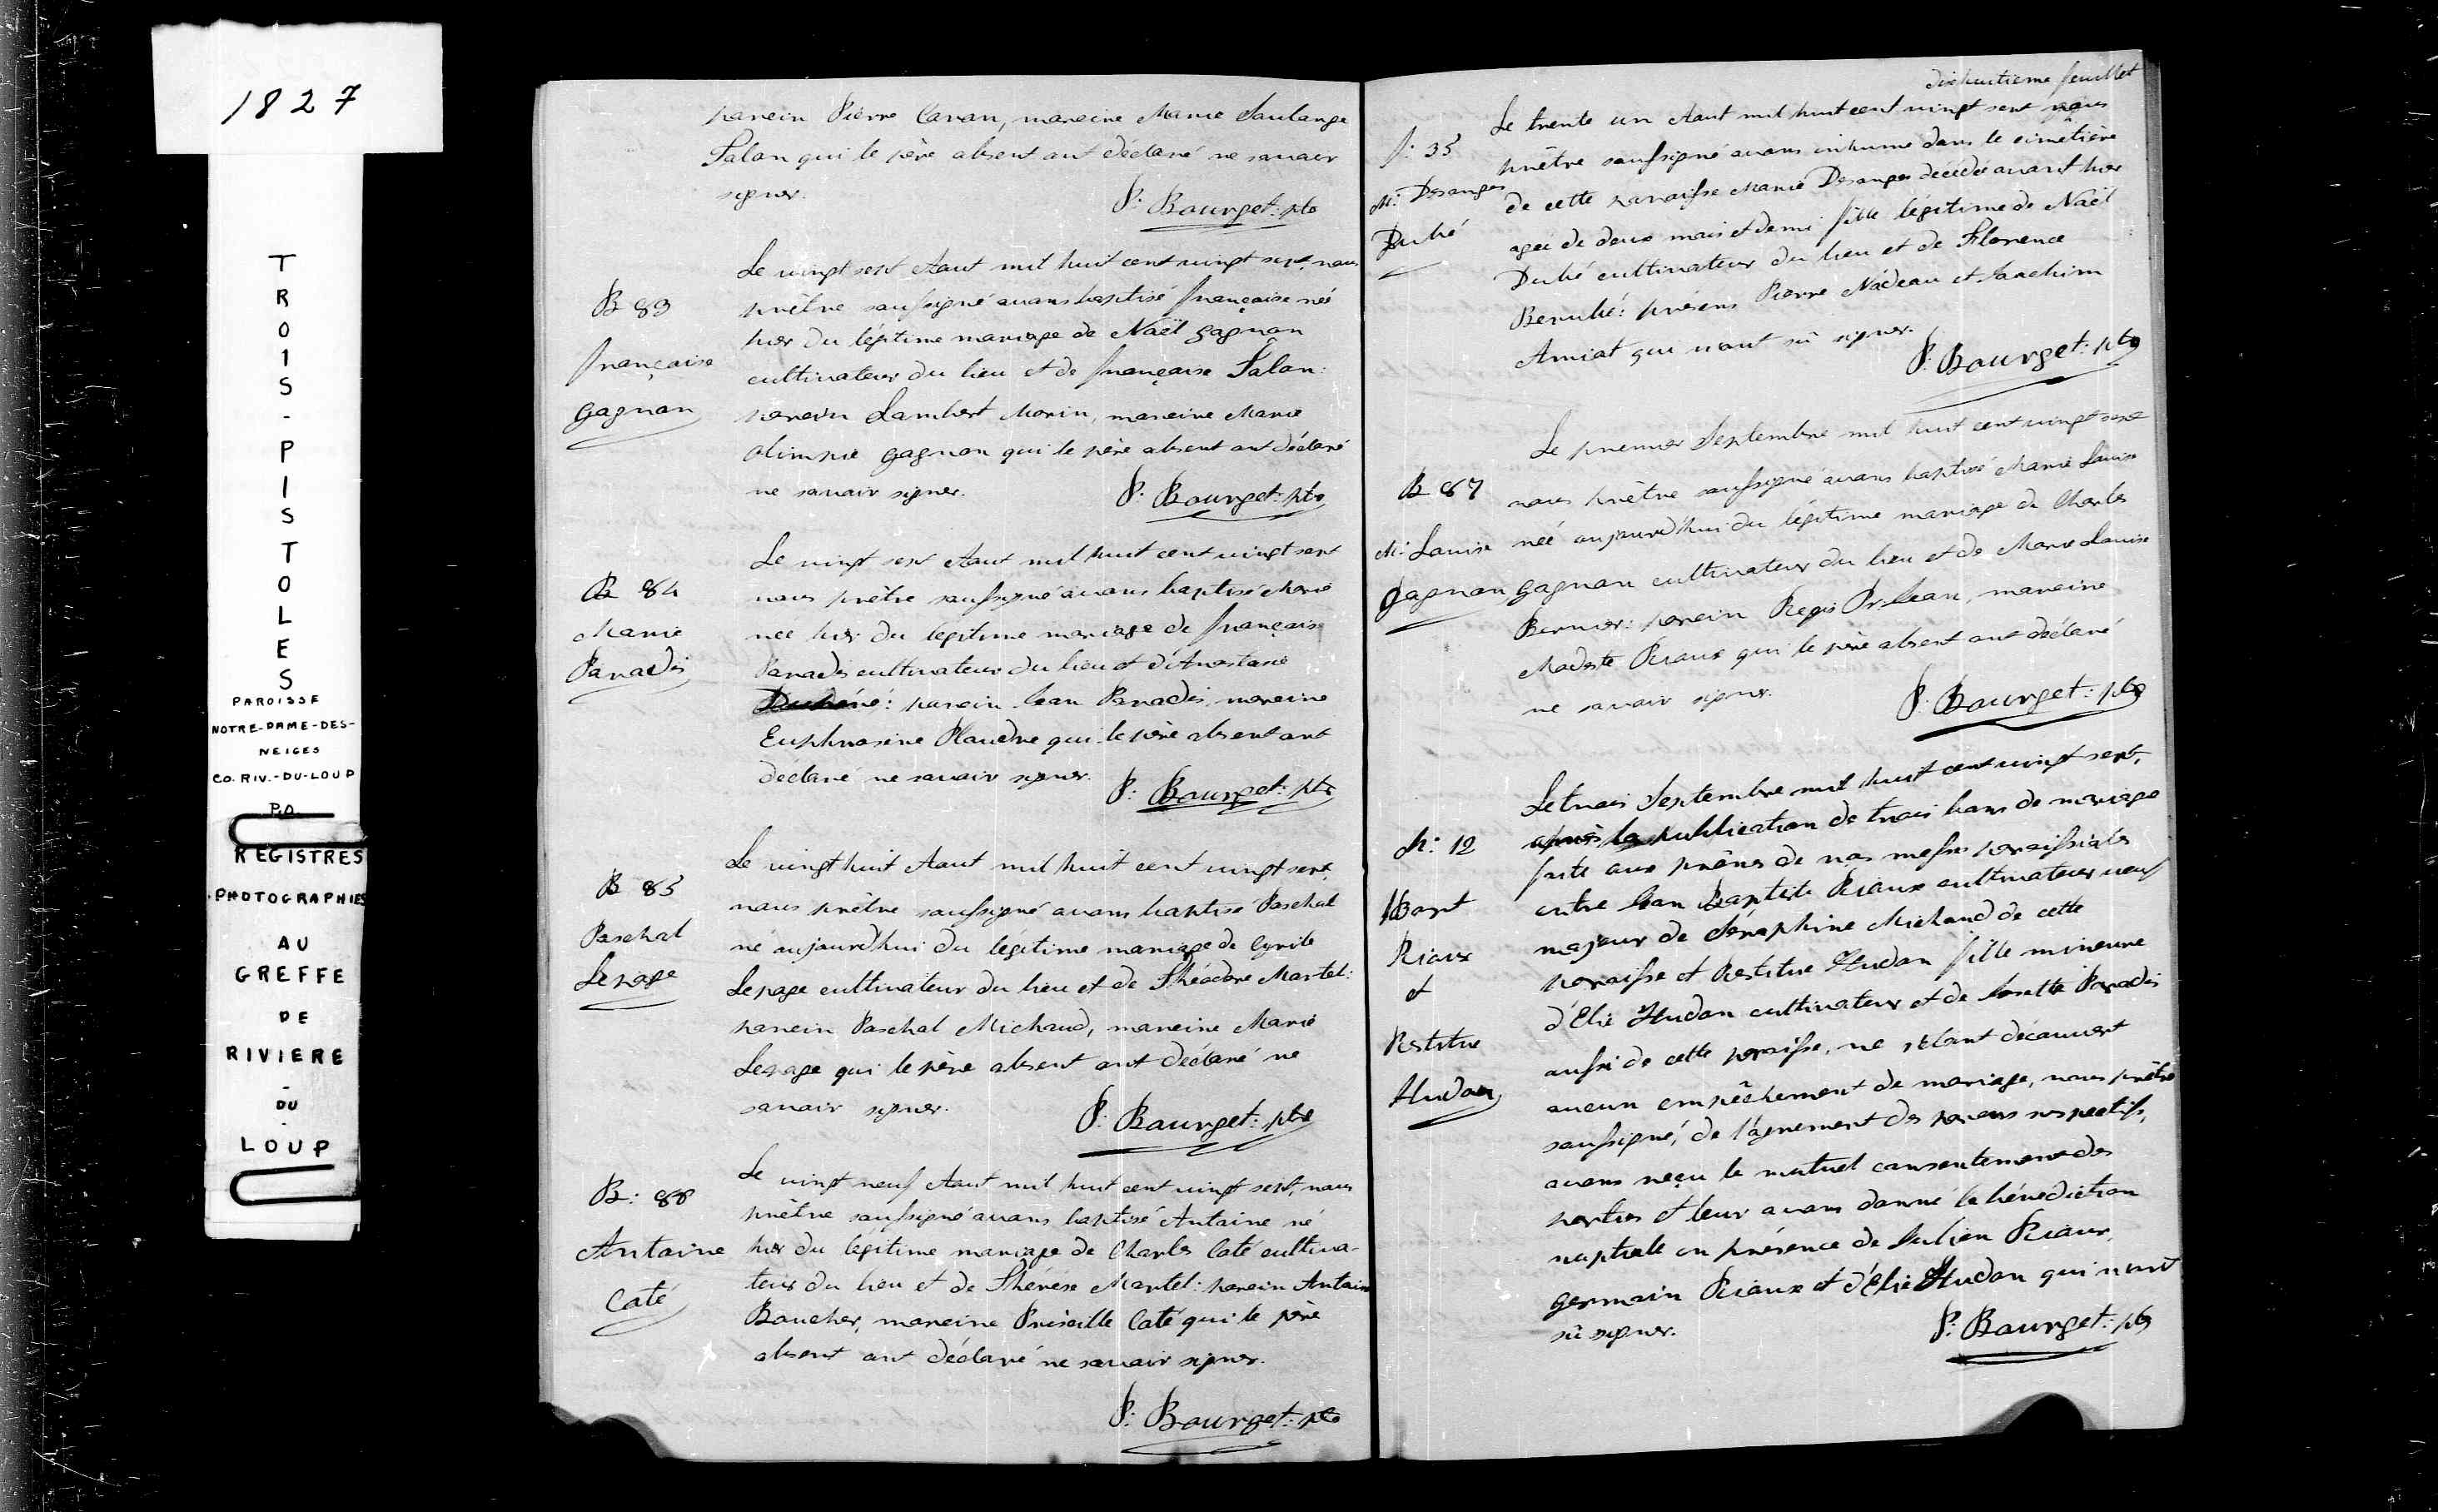 1827
TROIS-PISTOLES
PAROISSE
NOTRE-DAME-DES-
NEIGES
CO. RIV.-DU-LOUP
P.Q.
REGISTRES
PHOTOGRAPHIES
AU
GREFFE
DE
RIVIERE
-
DU
-
LOUP
parein Pierre Caron, mareine Marie Soulange
Talon qui le père absent ont déclaré ne savoir
signer.
P: Bourget: ptre
B 83
françoise
Gagnon
Le vingt sept Aout mil huit cent vingt sept, nous
prêtre soussigné avons baptisé françoise née
hier du légitime mariage de Noël Gagnon
cultivateur du lieu et de françoise Talon:
parein Lambert Morin, mareine Marie
Olimpie Gagnon qui le père absent ont déclaré
ne savoir signer.
P: Bourget: ptre
B 84
Marie
Paradis
Le vingt sept Aout mil huit cent vingt sept
nous prêtre soussigné avons baptisé Marie
née hier du légitime mariage de françois
Paradis cultivateur du lieu et d'Anastasie
: parein Jean Paradis, mareine
Euphrosine Plaudre qui le père absent ont
déclaré ne savoir signer.
P: Bourget: ptre
B 85
Paschal
Lepage
Le vingt huit Aout mil huit cent vingt sept,
nous prêtre soussigné avons baptisé Paschal
né aujourdhui du légitime mariage de Cyrile
Lepage cultivateur du lieu et de Théodore Martel:
parein Paschal Michaud, mareine Marie
Lepage qui le père absent ont déclaré ne
savoir signer.
P: Bourget: ptre
B: 88
Antoine
Coté
Le vingt neuf Aout mil huit cent vingt sept, nous
prêtre soussigné avons baptisé Antoine né
hier du légitime mariage de Charles Coté cultiva-
teur du lieu et de Thérèse Martel: parein Antoine
Boucher, mareine Priscille Coté qui le père
absent ont déclaré ne savoir signer.
P: Bourget: ptre
dixhuitieme feuillet
S: 35
M: Desanges
Dubé
Le trente un Aout mil huit cent vingt sept nous
prêtre soussigné avons inhumé dans le cimetière
de cette paroisse Marie Desanges décédée avant hier
agée de deux mois et demi fille légitime de Noël
Dubé cultivateur du lieu et de Florence
Berubé: présens Pierre Nadeau et Joachim
Amiot qui n'ont sû signer.
P: Bourget: ptre
B 87
M: Louise
Gagnon
Le premier Septembre mil huit cent vingt sept
nous prêtre soussigné avons baptisé Marie Louise
née aujourd'hui du légitime mariage de Charles
Gagnon cultivateur du lieu et de Marie Louise
Bernier: parein Regis , mareine
Modeste Rioux qui le père absent ont déclaré
ne savoir signer.
P: Bourget: ptre
M: 12
Bapt
Rioux
et
Restitue
Hudon
Le trois Septembre mil huit cent vingt sept,
après la publication de trois bans de mariage
faite aux prônes de nos messes paroissiales
entre Jean Baptiste Rioux cultivateur veuf
majeur de Séraphine Michaud de cette
paroisse et Restitue Hudon fille mineure
d'Elie Hudon cultivateur et de Josette Paradis
aussi de cette paroisse, ne s'étant découvert
aucun empêchement de mariage, nous prêtre
soussigné, de l'agrement des parens respectifs,
avons reçu le mutuel consentement des
parties et leur avons donné la bénédiction
nuptiale en présence de Julien Rioux,
Germain Rioux et d'Elie Hudon qui n'ont
sû signer.
P: Bourget: ptre